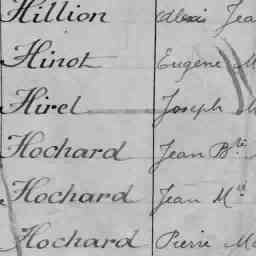 Hillion Alexis Jea
Hinot Eugène M
Hirel Joseph M
Hochard Jean Bte
Hochard Jean Mie
Hochard Pierre Ma